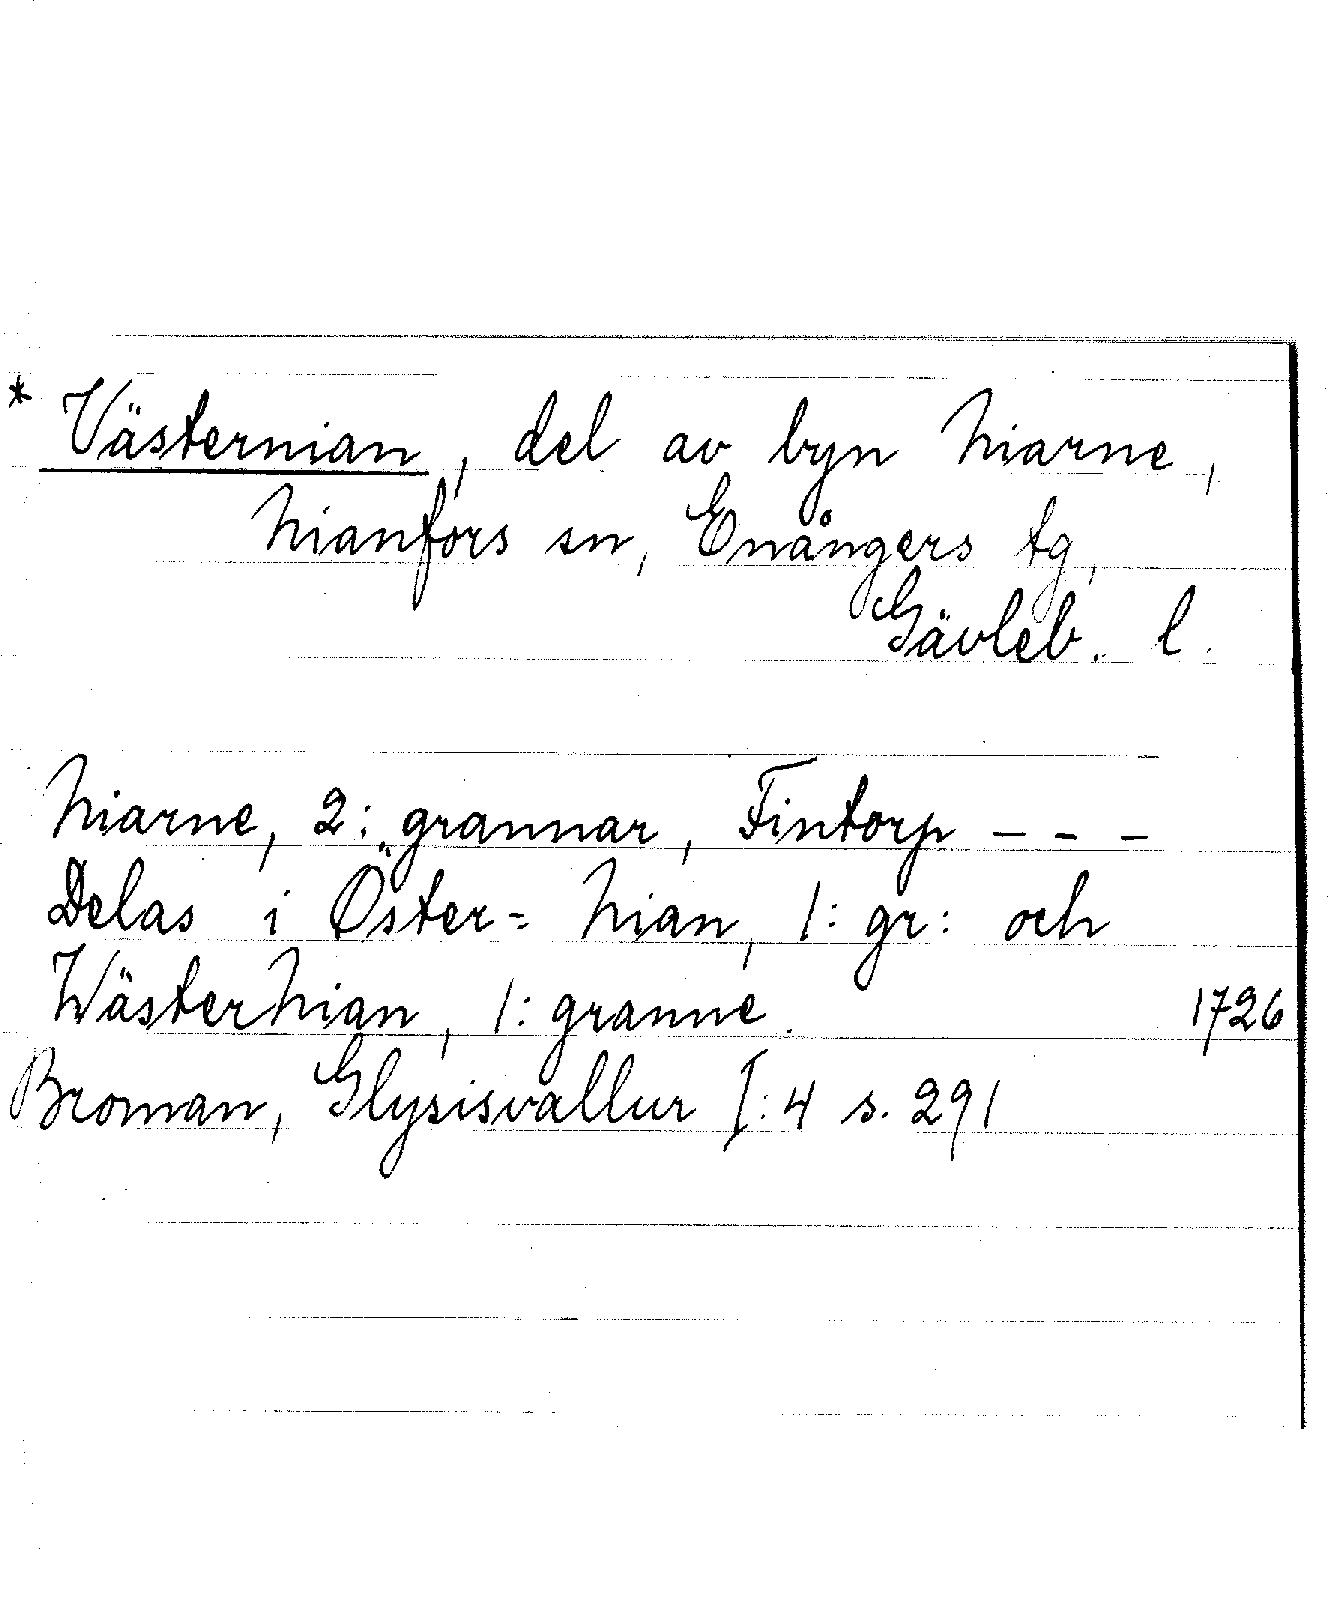 * Västernian, del av byn Niarne,
Nianfors sn, Enångers tg,
Gävleb. l.
Niarne, 2: grannar, Fintorp - - -
Delas i Öster= Nian, 1: gr: och
WästerNian, 1: granne. 1726
Broman, Glysisvallur I:4 s. 291